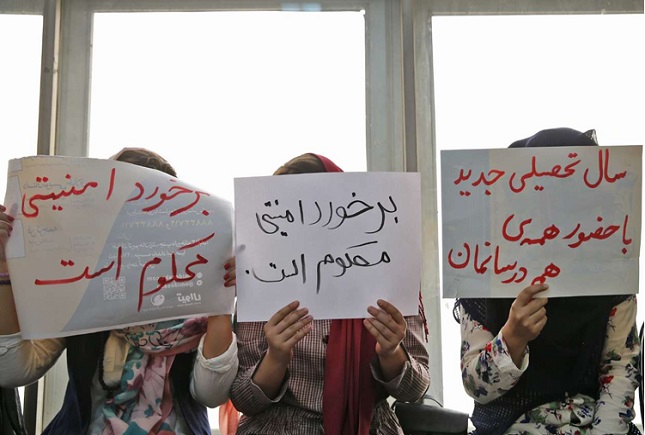 برخورد امنیتی
محکوم است
برخورد امنیتی
محکوم است.
سال تحصیلی جدید
با حضور همه‌ی
هم درسانمان